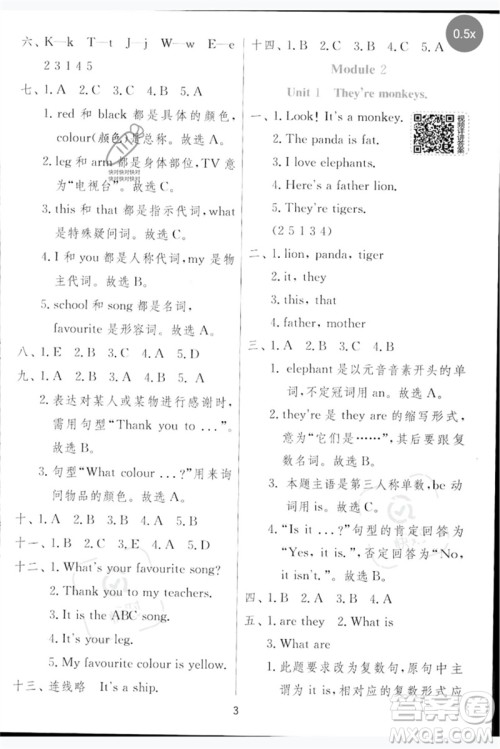 六、K—k T—t J—j W—w E—e
2 3 1 4 5
七、1. A 2. B 3. C 4. B 5. A
1. red 和 black 都是具体的颜色,
colour(颜色)是总称。故选 A。
2. leg 和 arm 都是身体部位, TV 意
为“电视台”。故选 B。
3. this 和 that 都是指示代词, what
是特殊疑问词。故选 C。
4. I 和 you 都是人称代词, my 是物
主代词。故选 B。
5. school 和 song 都是名词,
favourite 是形容词。故选 A。
八、1. E 2. B 3. C 4. A 5. D
九、1. A 2. B 3. B 4. A 5. A
2. 表达对某人或某物进行感谢时,
需用句型“Thank you to ...”。
故选 B。
3. 句型“What colour ...?”用来询
问物品的颜色。故选 B。
十、1. A 2. B 3. D 4. C
十一、1. B 2. C 3. A 4. D
十二、1. What's your favourite song?
2. Thank you to my teachers.
3. It is the ABC song.
4. It's your leg.
5. My favourite colour is yellow.
十三、连线略 It's a ship.
十四、1. B 2. B 3. C 4. A 5. A
Module 2
Unit 1 They're monkeys.
一、1. Look! It's a monkey.
2. The panda is fat.
3. I love elephants.
4. Here's a father lion.
5. They're tigers.
(2 5 1 3 4)
二、1. lion, panda, tiger
2. it, they
3. this, that
4. father, mother
三、1. B 2. B 3. A 4. A
1. elephant 是以元音音素开头的单
词, 不定冠词用 an。故选 B。
2. they're 是 they are 的缩写形式,
意为“它们是……”, 其后面跟复
数名词。故选 B。
3. 本题主语是第三人称单数, be 动
词用 is。故选 A。
4. “Is it ...?”句型的肯定回答为
“Yes, it is.”, 否定回答为“No,
it isn't.”。故选 A。
四、1. B 2. A 3. A 4. B 5. A
五、1. They are 2. What is
3. What are
1. 此题要求改为复数句, 原句中主
语为单数, 相对应的复数形式应
3
0.5x
视频详讲答案